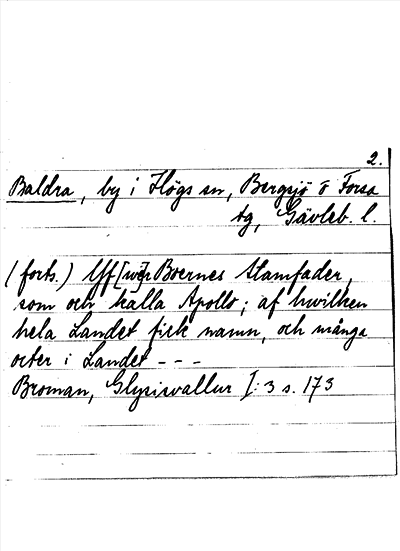 2.
Baldra, by i Högs sn, Bergsjö o Forsa
tg, Gävleb. l.
(forts.) Yf[we]r Boernes Stamfader,
som och kalla Apollo; af hwilken
hela Landet fick namn, och många
orter i Landet - - -
Broman, Glysisvallur I: 3 s. 173